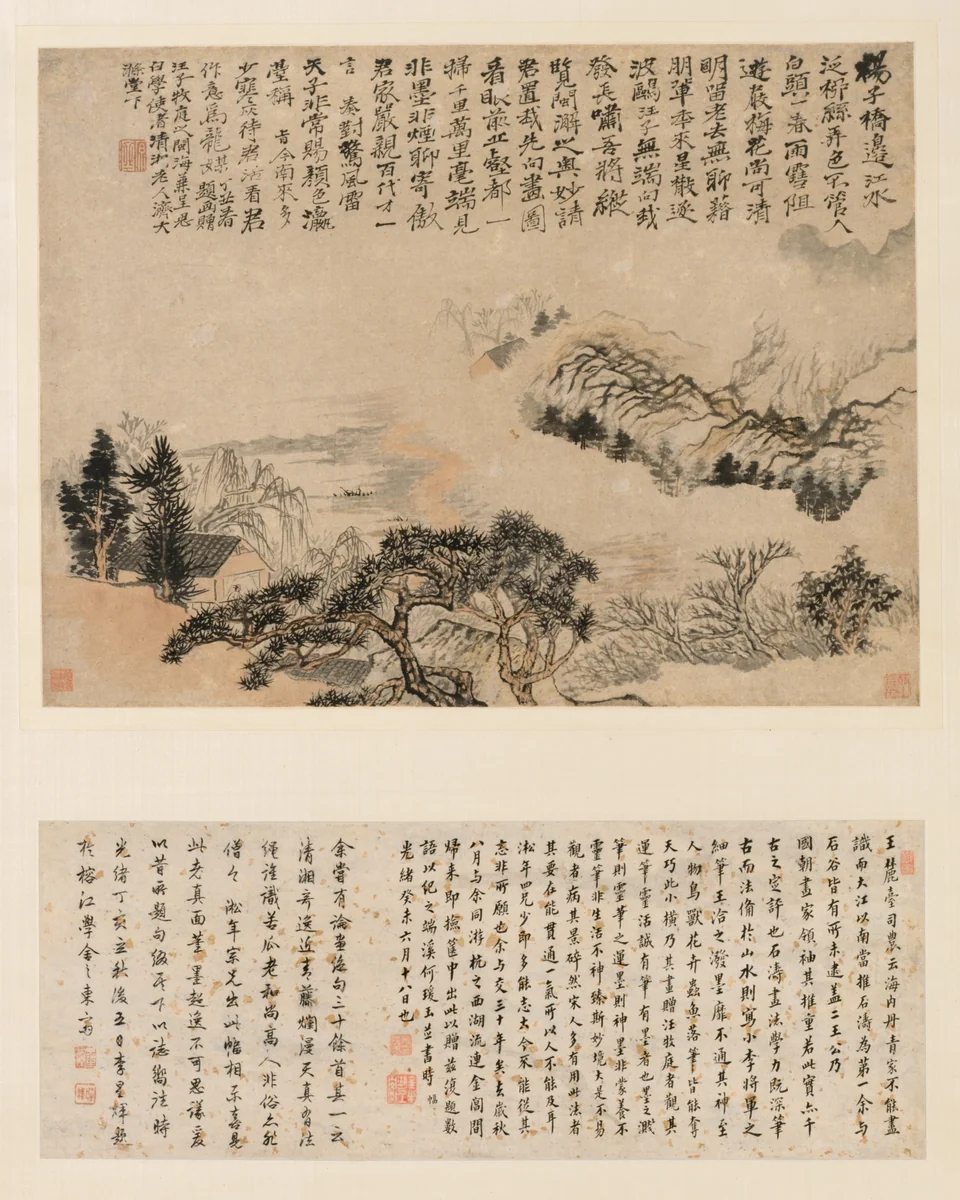 楊子橋邊江水
泛柳絲弄色不管人
白頭一春雨雪阻
遊屐梅花尚可清
明留老去無聊藉
朋輩乘來星散逐
波鷗汪子無端向我
發長嘯吾將縱
覽閩澥之奧妙請
君置我先向畫圖
看眼前丘壑都一
掃千里萬里毫端見
非墨非煙聊寄傲
君家嚴親百代才一
言奏對驚風雷
天子非常賜顏色瀛
臺稱旨今南來多
少寒灰待君活看君
作意為龍媒
題畫贈
汪子牧庭之閩海兼呈思
白學使者清湘老人濟大
滌堂下
王麓臺司農云海內丹青家不能盡
識而大江以南當推石濤為第一余與
石谷皆有所未逮蓋二王公乃
國朝畫家領袖其推重若此實亦千
古之定評也石濤畫法學力既深筆
古而法備於山水則寫小李將軍之
細筆王洽之潑墨靡不通其神至
人物鳥獸花卉蟲魚落筆皆能奪
天巧此小橫乃其畫贈汪牧庭者觀其
運筆靈活誠有筆有墨者也墨之濺
筆則靈筆之運墨則神墨非蒙養不
靈筆非生活不神臻斯妙境大是不易
觀者病其景碎然宋人多有用此法者
其要在能貫通一氣所以人不能及耳
淞年四兄少即多能志大今不能從其
志非所願也余與交三十年矣去歲秋
八月與余同游杭之西湖流連金閶間
歸來即撿篋中出此以贈茲復題數
語以紀之端溪何瑗玉並書時
光緒癸未六月十八日也
余嘗有論畫絕句三十餘首其一云
清湘奇逸近青藤爛漫天真有法
繩誰識苦瓜老和尚高人非俗亦非
僧今淞年宗兄出此幅相示喜見
此老真面筆墨超逸不可思議爰
以昔所題句綴於下以誌嚮往時
光緒丁亥立秋後五日李星輝題
於榕江學舍之東齋